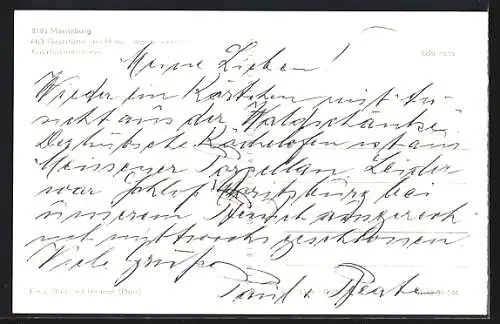 8105 Moritzburg
HO-Gaststätte und Hotel "Waldschänke"
Echt Foto
Meine Lieben!
Wieder ein Kärtchen mit An-
sicht aus der "Waldschänke"
Der hübsche Kachelofen ist aus
Meissener Porzellan. Leider
war Schloß Moritzburg bei
unserem Besuch ausgerech
net mittwochs geschlossen
Viele Grüße
Paul & Beate